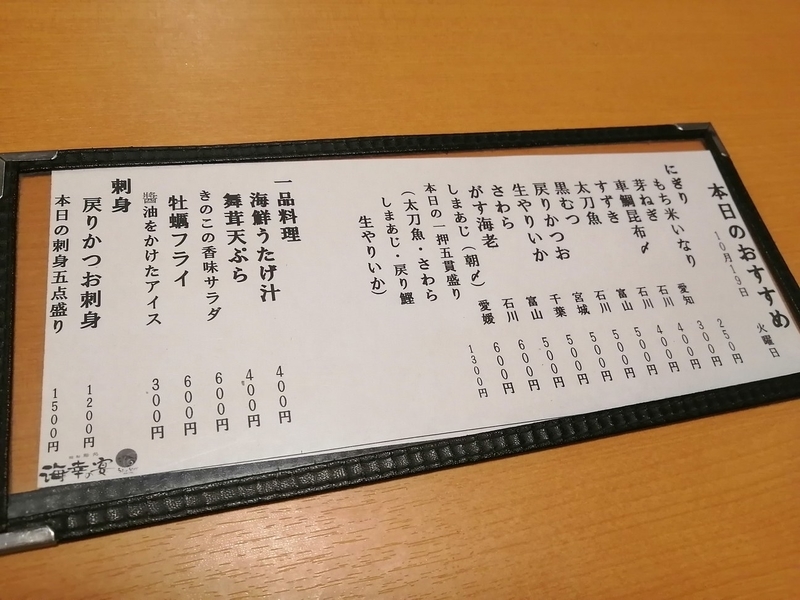 本日のおすすめ
10月19日 火曜日
にぎり
もち米いなり 250円
芽ねぎ 愛知 300円
車鯛昆布〆 石川 400円
すずき 石川 400円
太刀魚 富山 500円
黒むつ 石川 500円
戻りかつお 宮城 500円
生やりいか 千葉 500円
さわら 富山 500円
がす海老 石川 600円
しまあじ（朝〆） 愛媛 600円
本日の一押五貫盛り 1300円
（太刀魚・さわら
しまあじ・戻り鰹
生やりいか）
一品料理
海鮮うたげ汁 400円
舞茸天ぷら 400円
きのこの香味サラダ 600円
牡蠣フライ 600円
醬油をかけたアイス 300円
刺身
戻りかつお刺身 1200円
本日の刺身五点盛り 1500円
海幸の宴